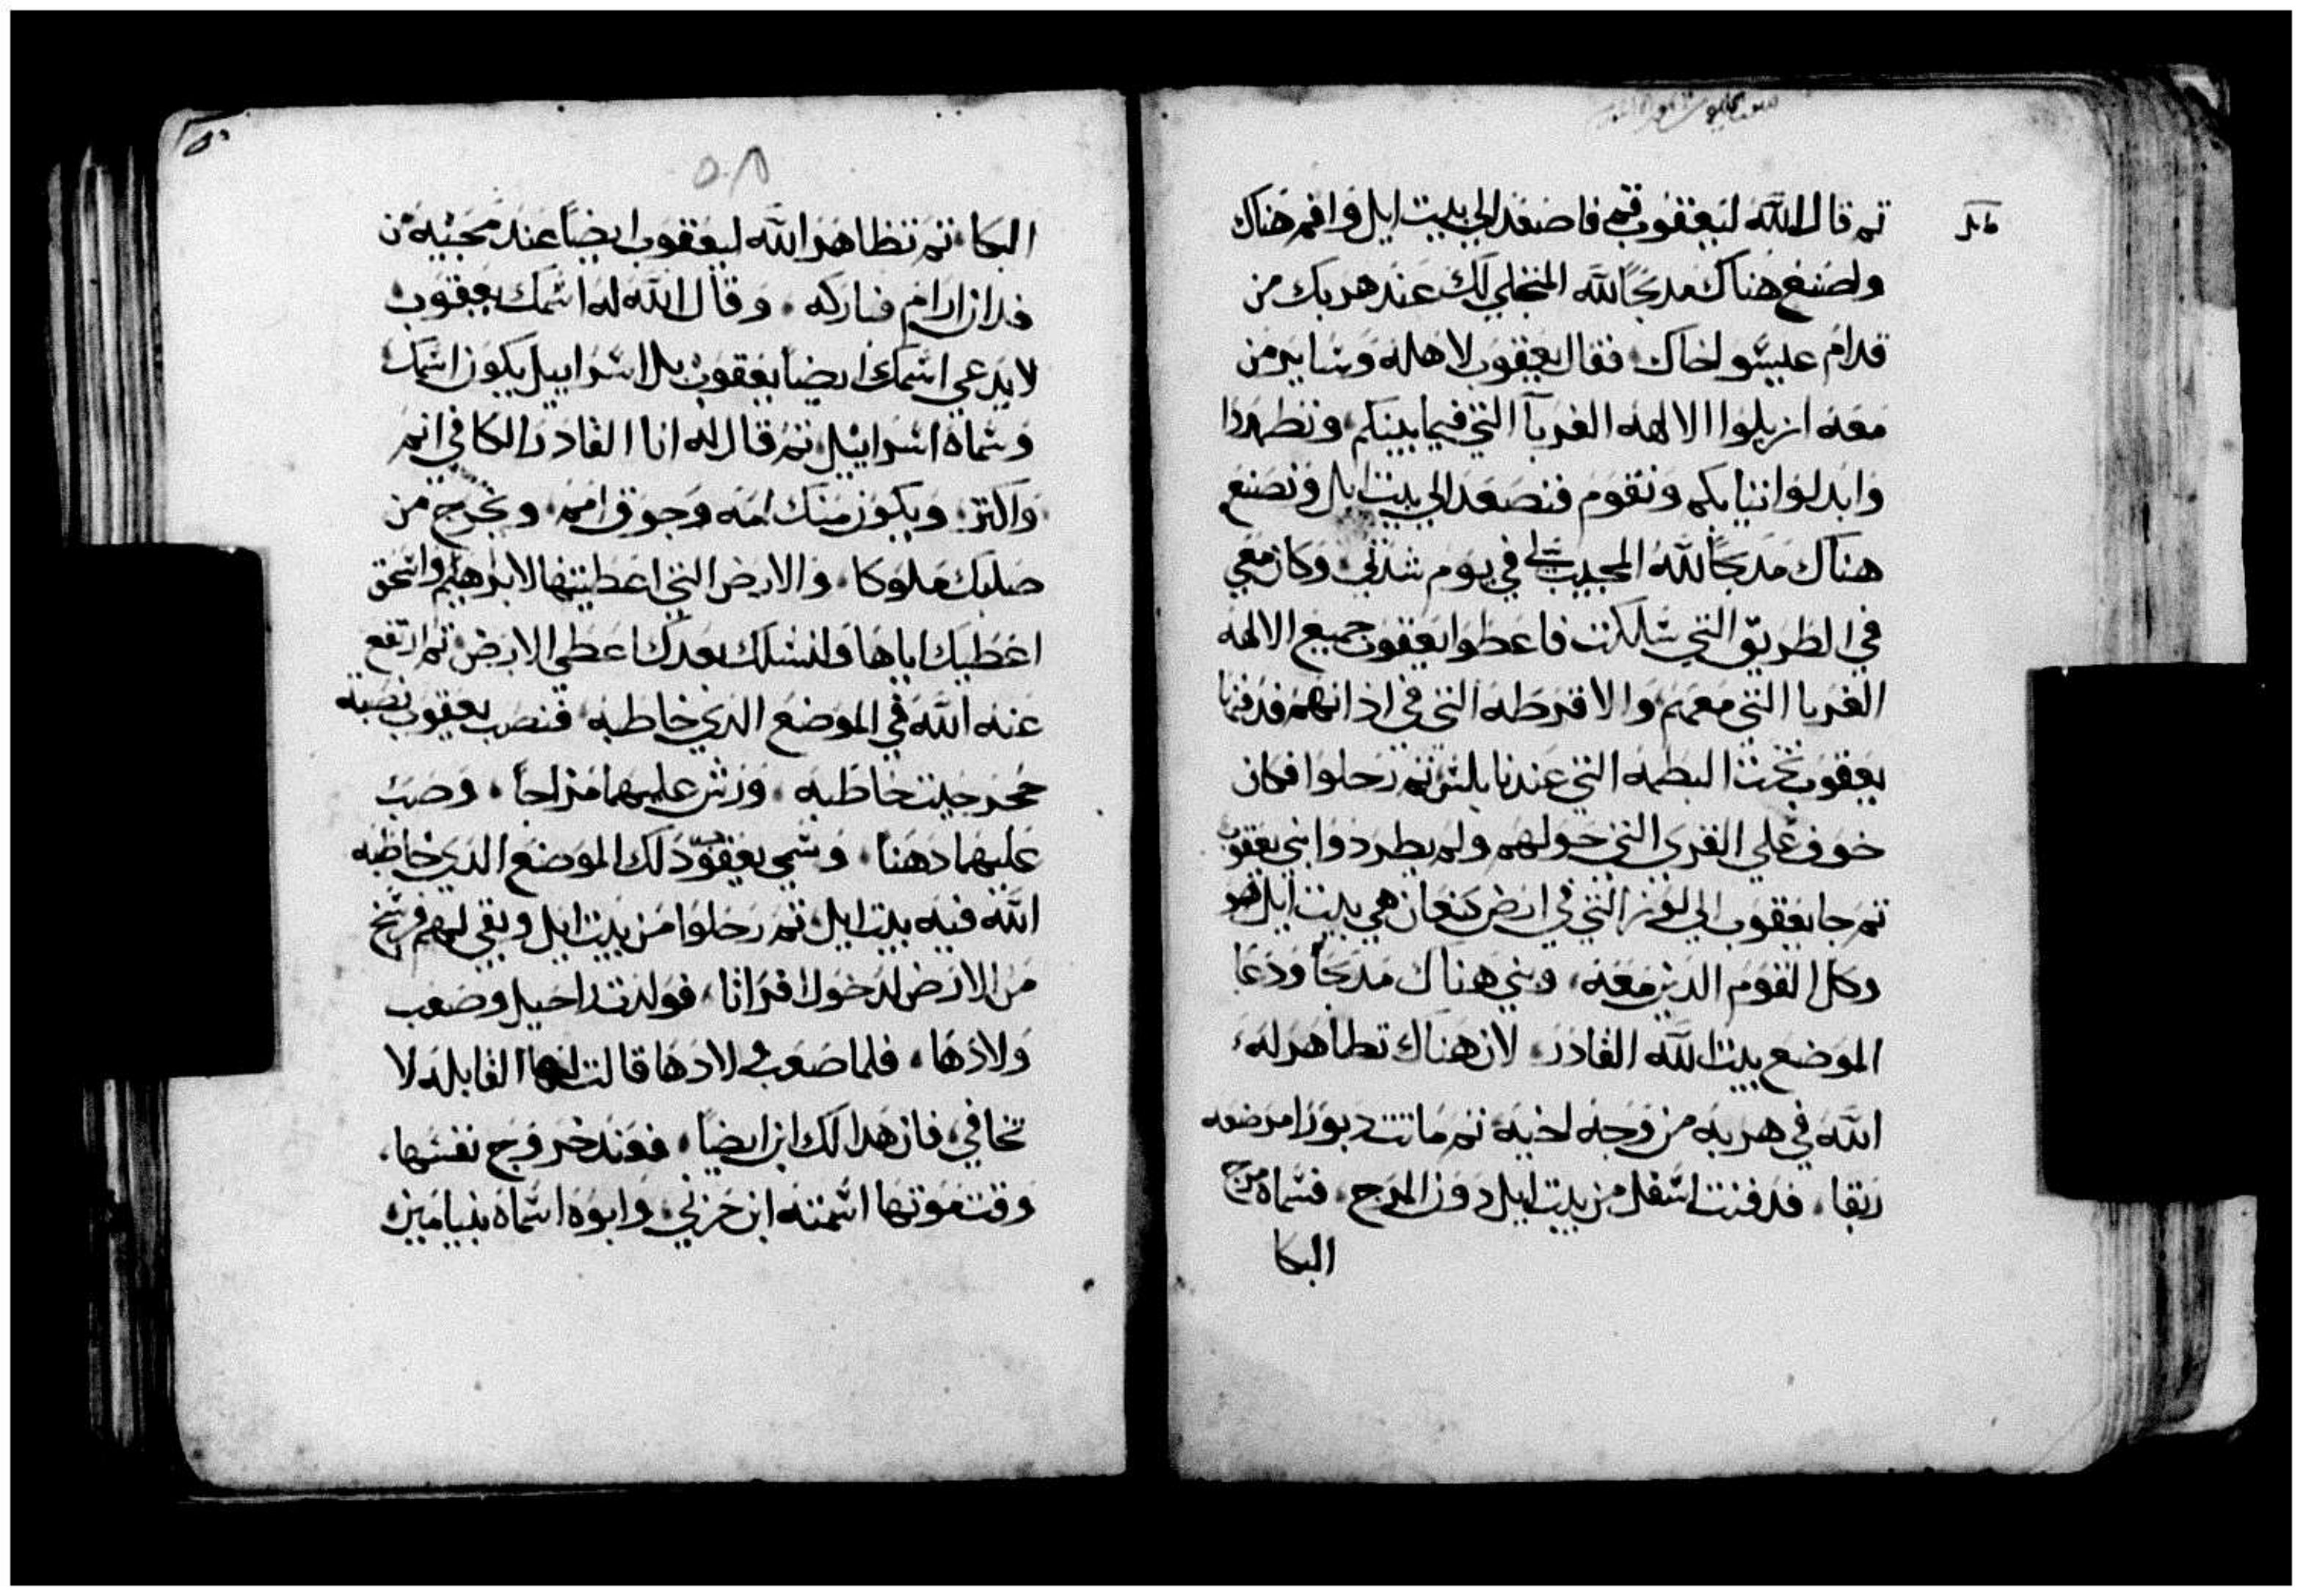 تم قال الله ليعقوب قم فاصعد الي بيت ايل واقم هناك
واصنع هناك مدبحًا لله المتجلي لك عند هربك من
قدام عيسو اخاك فقال يعقوب لاهله وساير من
معه ازيلوا الالهه الغربا التي فيما بينكم وتطهروا
وابدلوا تيابكم ونقوم فنصعد الي بيت ايل ونصنع
هناك مدبحًا لله المجيب لي في يوم شدتي وكان معي
في الطريق التي سلكت فاعطوا يعقوب جميع الالهه
الغربا التي معهم والاقرطه التي في اذانهم فدفنها
يعقوب تحت البطمه التي عند نابلس تم رحلوا فكان
خوف علي القري التي حولهم ولم يطردوا بني يعقوب
تم جا يعقوب الي لوز التي في ارض كنعان هي بيت ايل هو
وكل القوم الدين معه وبني هناك مدبحًا ودعا
الموضع بيت الله القادر لان هناك تظاهر له
الله في هربه من وجه اخيه تم ماتت دبورا مرضعه
ربقا فدفنت اسفل من بيت ايل دون المرج فسماه مرج
البكا
٥٨
البكا تم تظاهر الله ليعقوب ايضًا عند مجيئه من
فدان ارام فباركه وقال الله له اسمك يعقوب
لا يدعي اسمك ايضًا يعقوب بل اسراييل يكون اسمك
وسماه اسراييل تم قال له انا القادر الكافي انم
واكتر ويكون منك امه وجوق امم وتخرج من
صلبك ملوكا والارض التي اعطيتها لابرهيم واسحق
اعطيك اياها ولنسلك بعدك اعطي الارض تم ارتفع
عنه الله في الموضع الدي خاطبه فنصب يعقوب نصبه
حجر حيت خاطبه ورش عليها مزاجًا وصب
عليها دهنًا وسمي يعقوب دلك الموضع الدي خاطبه
الله فيه بيت ايل تم رحلوا من بيت ايل وبقي لهم فرسخ
من الارض لدخول افراتا فولدت راحيل وصعب
ولادها فلما صعب ولادها قالت لها القابله لا
تخافي فان هدا لك ابن ايضًا فعند خروج نفسها
وقت موتها اسمته ابن حزني وابوه اسماه بنيامين